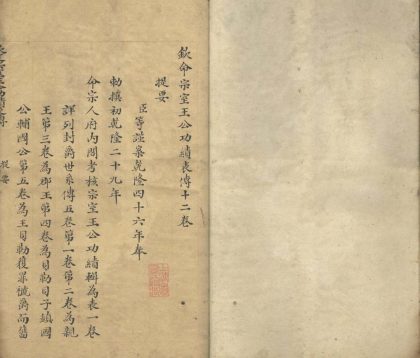 欽命宗室王公功績表傳十二卷
提要
臣等謹案乾隆四十六年奉
勅撰初乾隆二十九年
命宗人府內閣考核宗室王公功績輯為表一卷
詳列封爵世系傳五卷第一卷第二卷為親
王第三卷為郡王第四卷為貝勒貝子鎮國
公輔國公第五卷為王貝勒獲罪褫爵而舊
提要